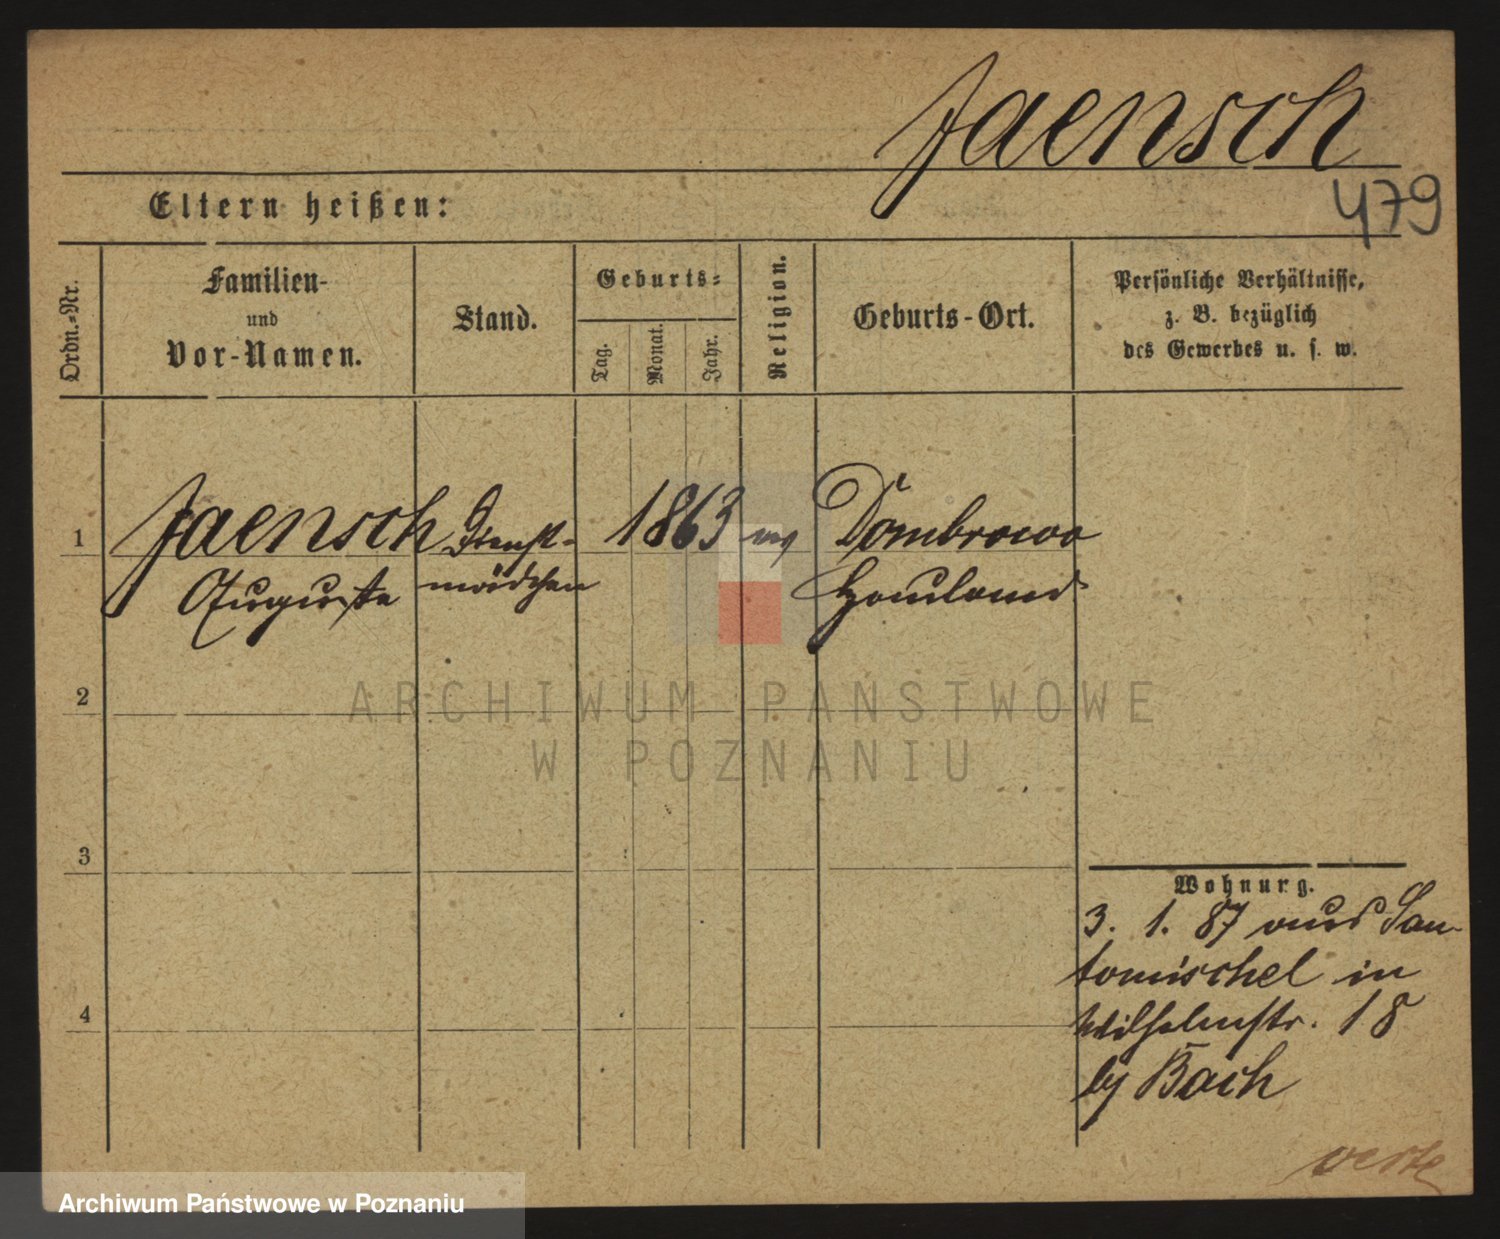 Jaensch
479
Eltern heißen:
Ordn.-Nr.
Familien-
und
Vor-Namen.
Stand.
Geburts-
Tag.
Monat.
Jahr.
Religion.
Geburts-Ort.
Persönliche Verhältnisse,
z. B. bezüglich
des Gewerbes u. s. w.
1
Jaensch
Auguste
Dienst-
mädchen
1863
ev
Dombrowo
Hauland
2
3
4
Wohnung.
3. 1. 87 aus San-
tomischel in
Wilhelmstr. 18
by Bach
verte
ARCHIWUM PAŃSTWOWE
W POZNANIU
Archiwum Państwowe w Poznaniu